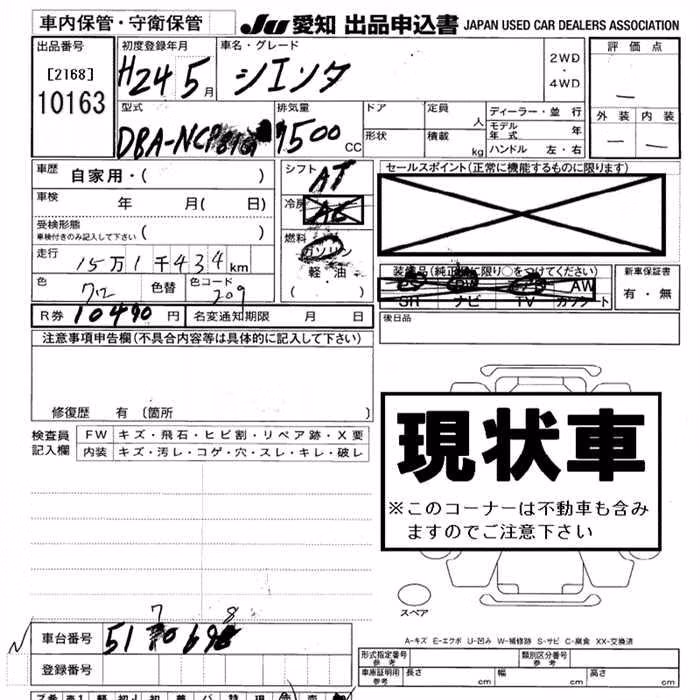 車内保管・守衛保管 JU 愛知 出品申込書 JAPAN USED CAR DEALERS ASSOCIATION
出品番号 初度登録年月 車名・グレード 2WD・4WD 評価点
[2168] H24 5月 シエンタ
10163 外装 内装
型式 排気量 ドア 定員 人 ディーラー・並行
DBA-NCP 1500 CC 形状 積載 kg モデル年式 年
ハンドル 左・右
車歴 自家用・( ) シフト AT セールスポイント(正常に機能するものに限ります)
車検 年 月( 日) 冷房 AC
受検形態 ( )
車検付きのみ記入して下さい
燃料 ガソリン
走行 15万1千434km 軽・油
( )
装備品(純正品に限り○をつけてください) 新車保証書
色 色替 色コード 209 PS PW AW 有・無
SR ナビ TV カセット
R券 10490円 名変通知期限 月 日 後日品
注意事項申告欄(不具合内容等は具体的に記入して下さい)
修復歴 有 〔箇所 〕
検査員記入欄 FW キズ・飛石・ヒビ割・リペア跡・X要
内装 キズ・汚レ・コゲ・穴・スレ・キレ・破レ
現状車
※このコーナーは不動車も含み
ますのでご注意下さい
スペア
A-キズ E-エクボ U-凹み W-補修跡 S-サビ C-腐食 XX-交換済
7 8
車台番号 51 069
登録番号
形式指定番号 参考 類別区分番号 参考
車庫証明用 参考 長さ cm 幅 cm 高さ cm